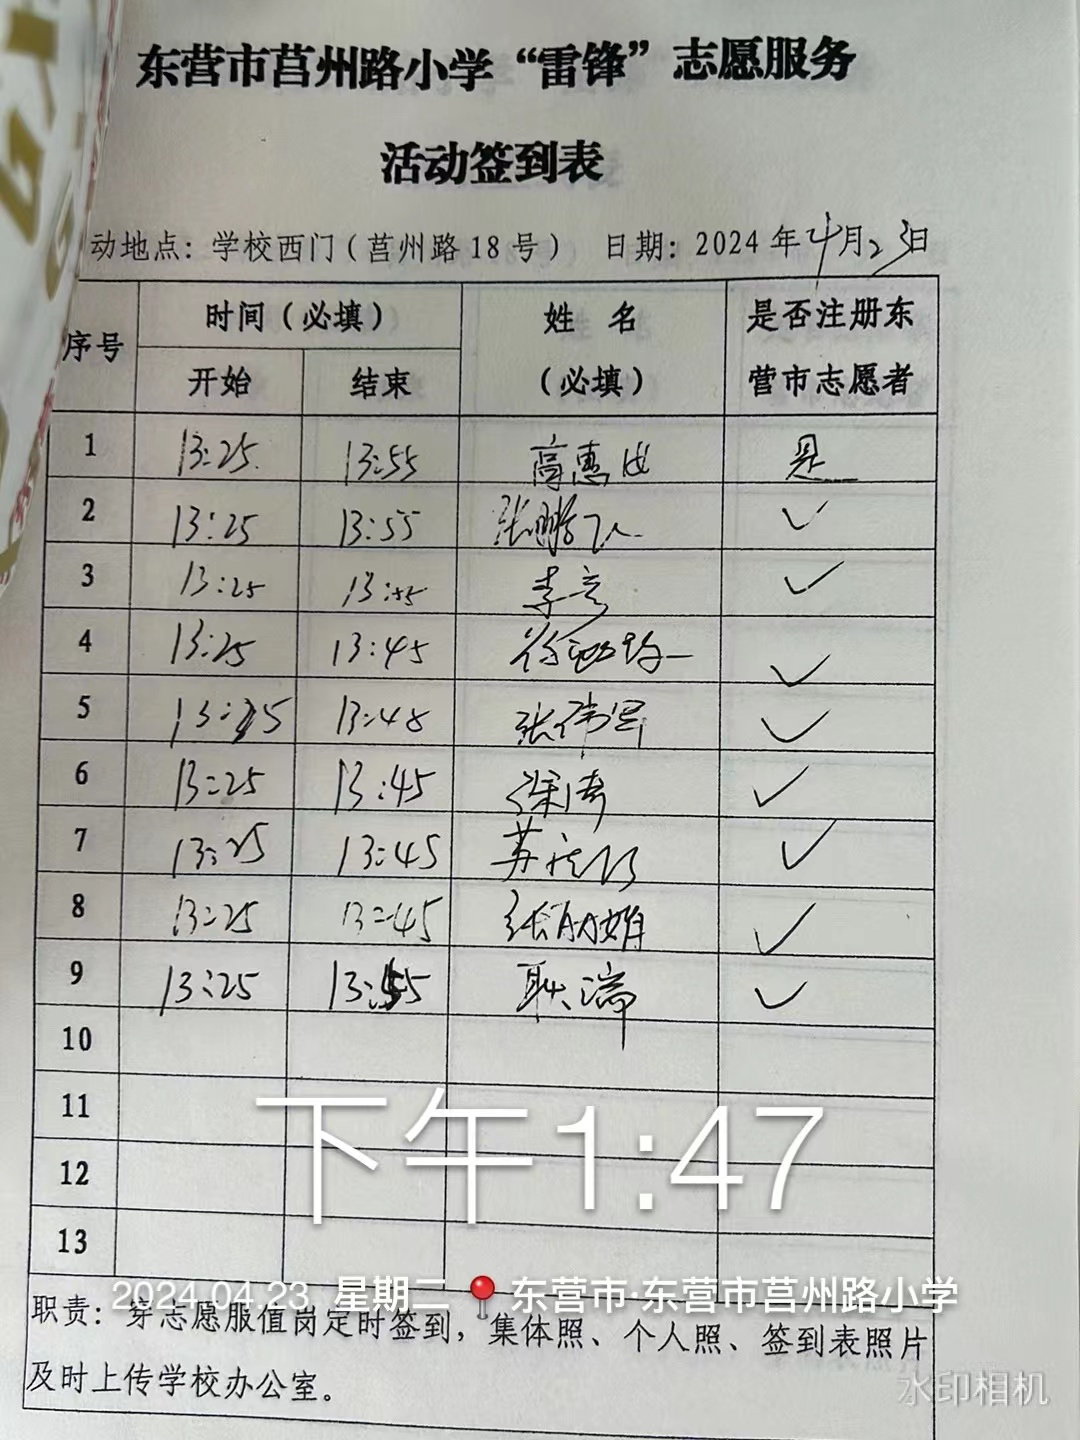 东营市莒州路小学“雷锋”志愿服务
活动签到表
动地点：学校西门（莒州路18号） 日期：2024年4月23日
序号 时间（必填） 姓 名 是否注册东
开始 结束 （必填） 营市志愿者
1 13:25 13:55 高惠 是
2 13:25 13:55 张鹏飞 ✓
3 13:25 13:55 李彦 ✓
4 13:25 13:45 徐 ✓
5 13:25 13:48 张伟军 ✓
6 13:25 13:45 徐涛 ✓
7 13:25 13:45 苏 ✓
8 13:25 13:45 张 ✓
9 13:25 13:55 耿端 ✓
10
11
下午1:47
12
13
2024.04.23 星期二 东营市·东营市莒州路小学
职责：穿志愿服值岗定时签到，集体照、个人照、签到表照片
及时上传学校办公室。
水印相机